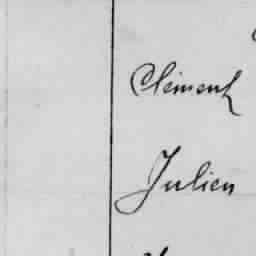 Clément
Julien